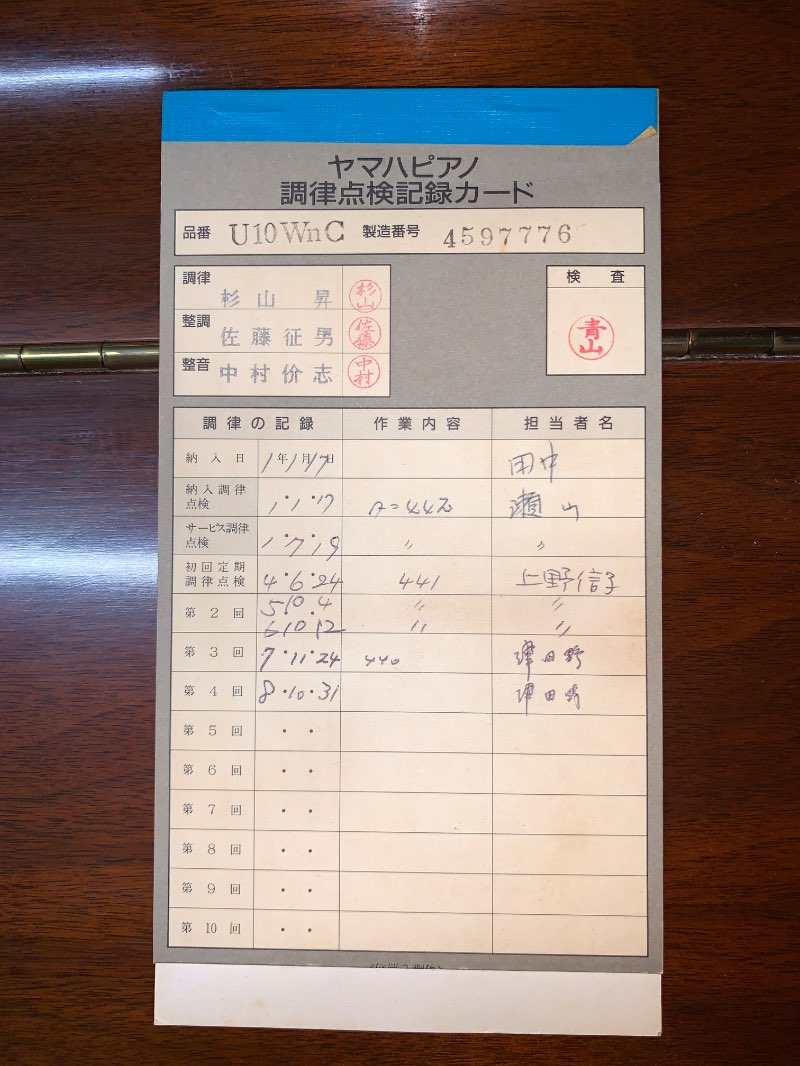 ヤマハピアノ
調律点検記録カード
品番 U10WnC 製造番号 4597776
調律 杉山 昇 杉山
整調 佐藤征男 佐藤
整音 中村价志 中村
検査
青山
調律の記録 作業内容 担当者名
納入日 1年1月17日 田中
納入調律点検 1・1・17 A=442 瀬山
サービス調律点検 1・7・19 〃 〃
初回定期調律点検 4・6・24 441 上野信子
第2回 5 10・4 〃 〃
6 10・12 〃 〃
第3回 7・11・24 440 津田
第4回 8・10・31 津田
第5回 ・ ・
第6回 ・ ・
第7回 ・ ・
第8回 ・ ・
第9回 ・ ・
第10回 ・ ・